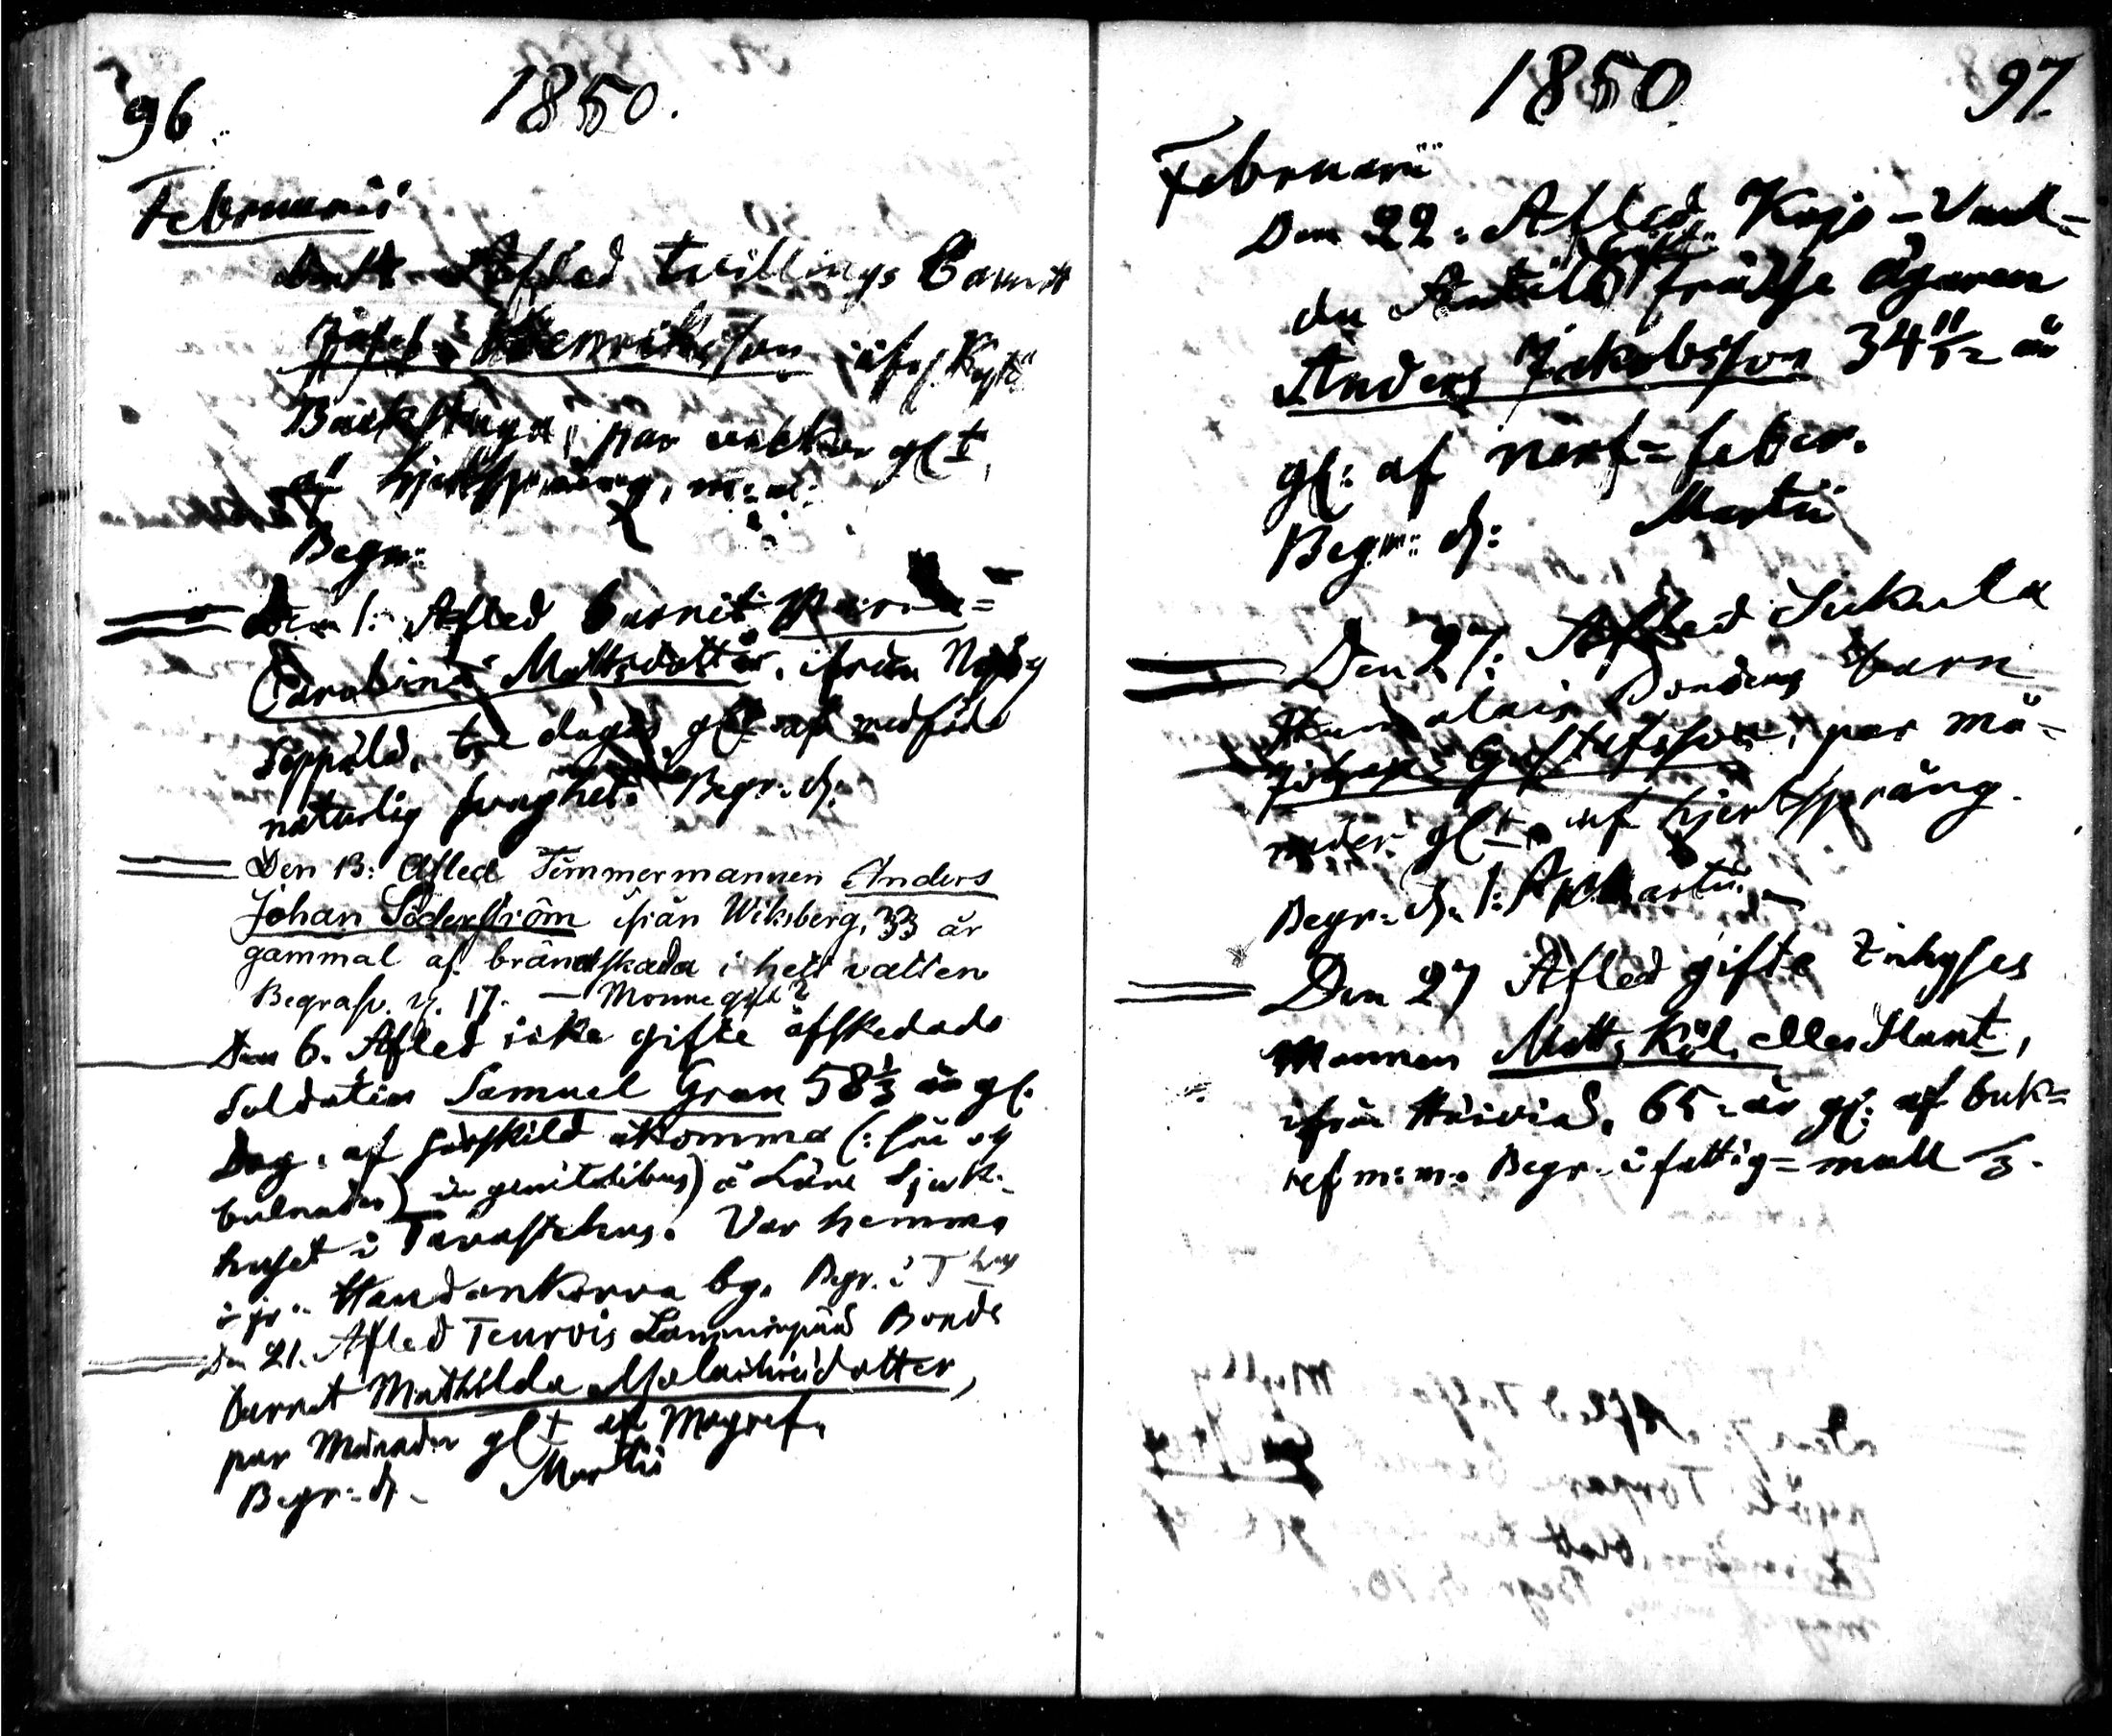 96
1850.
Februarii
Afled tvillings Barnet
Henriksson
Backstuga, par veckor gl:t,
af hjertsprång, m: m:
Begr:
Den 1: Afled barnet
Carolina Mattsdotter, ifrån
Seppälä, tre dagar gl:t af medfödd
naturlig svaghet. Begr: d:
Den 13: Afled Timmermannen Anders
Johan Söderström ifrån Wiksberg, 33 år
gammal af brännskada i hett vatten
Begrafv. d. 17. — Monne gift?
Den 6. Afled icke gifte afskedade
Soldaten Samuel Gran 58 1/3 år gl.
Dog, af särskild åkomma (: sår og
bulnader) in genitalibus) å Läne Sjuk-
huset i Tavastehus. Var hemma
ifr: Handankorva by. Begr. i T hus
Den 21. Afled Teurois Lamminpää Bonde
barnet Mathilda Malakiasdotter,
par Månader gl:t af Magref.
Begr: d. Martii
1850.
97.
Februarii
Den 22: Afled Kojo-Vanl-
da frälse ägaren
Anders Jakobsson 34 11/12 år
gl: af nerf=feber.
Begr: d: Martii
Den 27: Afled Sukula
Bondens barn
Johan Gustafsson, par må-
nader gl:t af hjertsprång.
Begr. d. 1: Martii.
Den 27 Afled gifte Inhyses
Mannen Matts Käl. eller Hunt,
ifrån Hirvio, 65 år gl: af buk-
ref m: m: Begr. i fattig=mull /3.